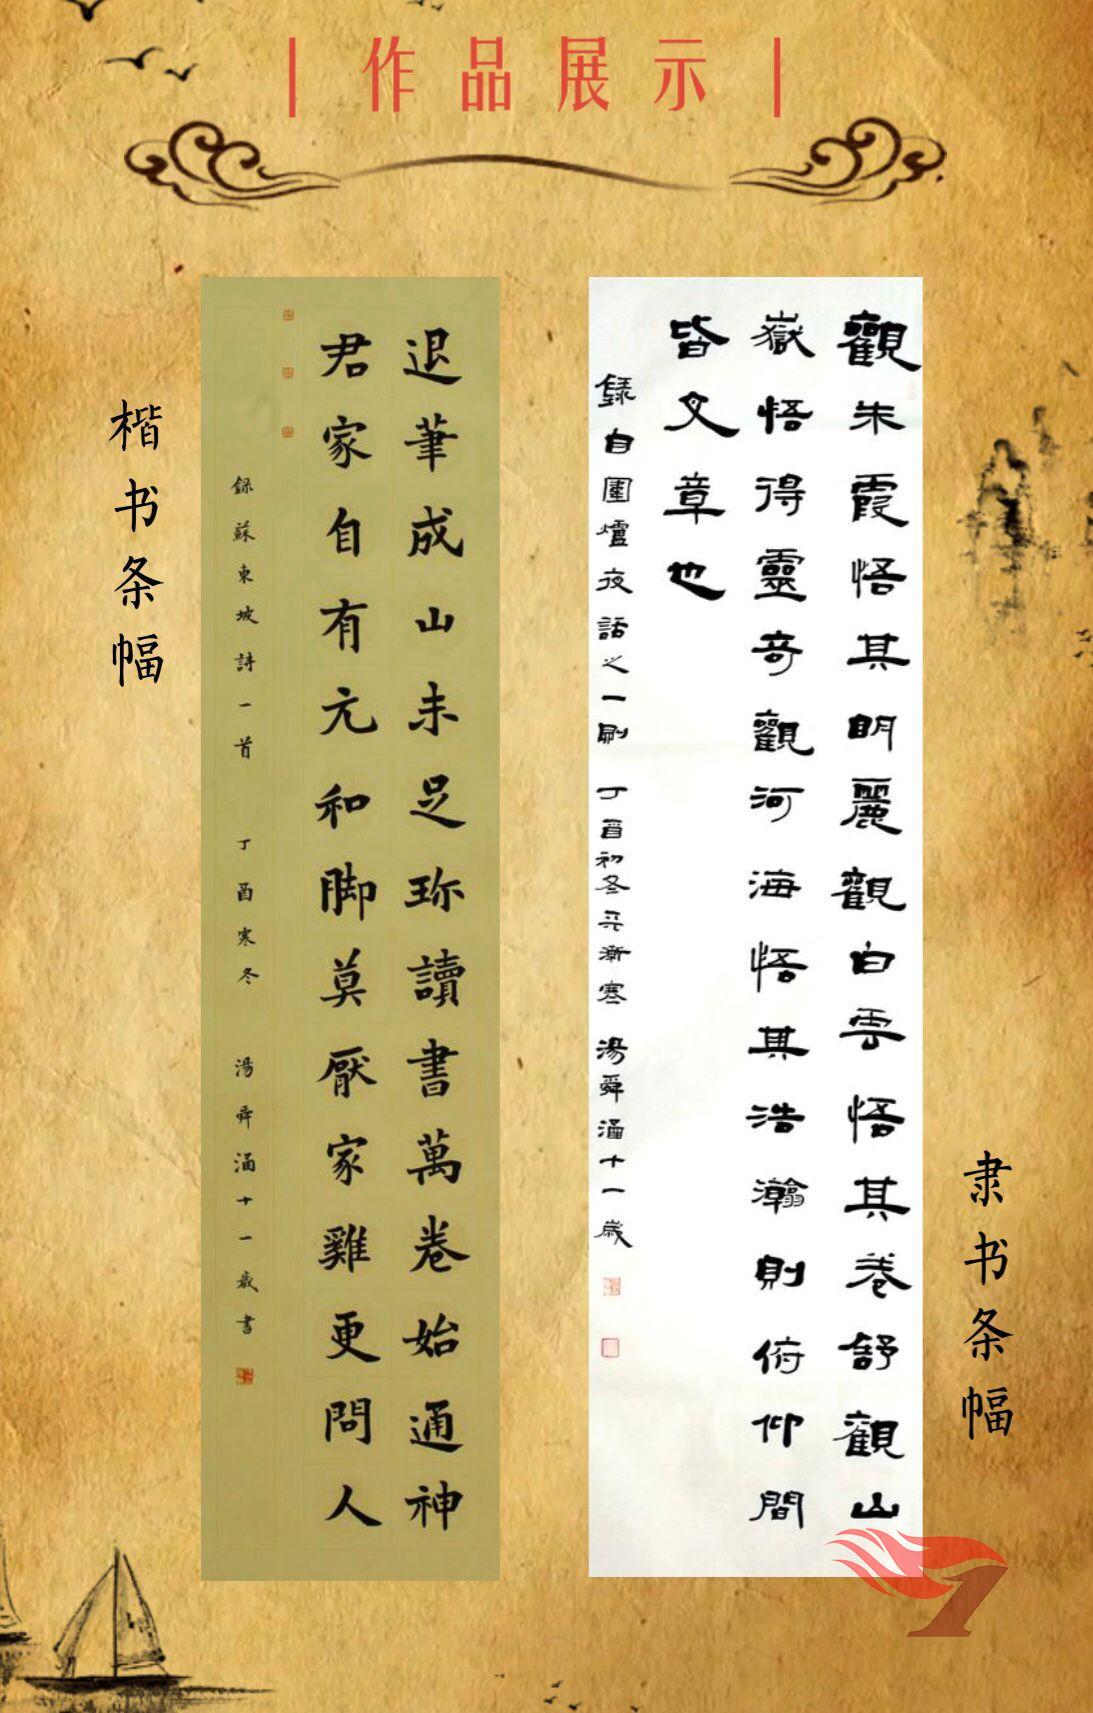 作品展示
楷书条幅
退筆成山未足珎讀書萬卷始通神
君家自有元和脚莫厭家雞更問人
録蘇東坡詩一首 丁酉寒冬 湯舜涵十一歲書
觀朱霞悟其眀麗觀白雲悟其卷舒觀山
嶽悟得靈奇觀河海悟其浩瀚則俯仰間
皆文章也
録自圍爐夜話之一刷 丁酉初冬天漸寒 湯舜涵十一歲
隶书条幅